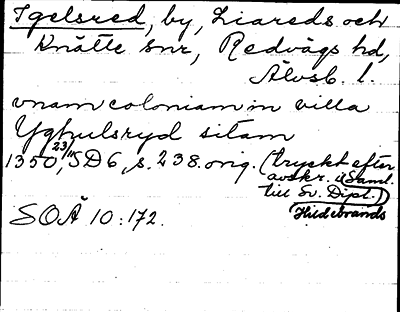 Igelsred, by, Liareds och
Knätte snr, Redvägs hd,
Älvsb. l.
vnam coloniam in villa
Yghulsryd sitam
1350 23/11, SD 6, s. 238. orig. (tryckt efter
avskr. i Saml.
till Sv. Dipl.)
(Hildebrands
SOÄ 10:172.